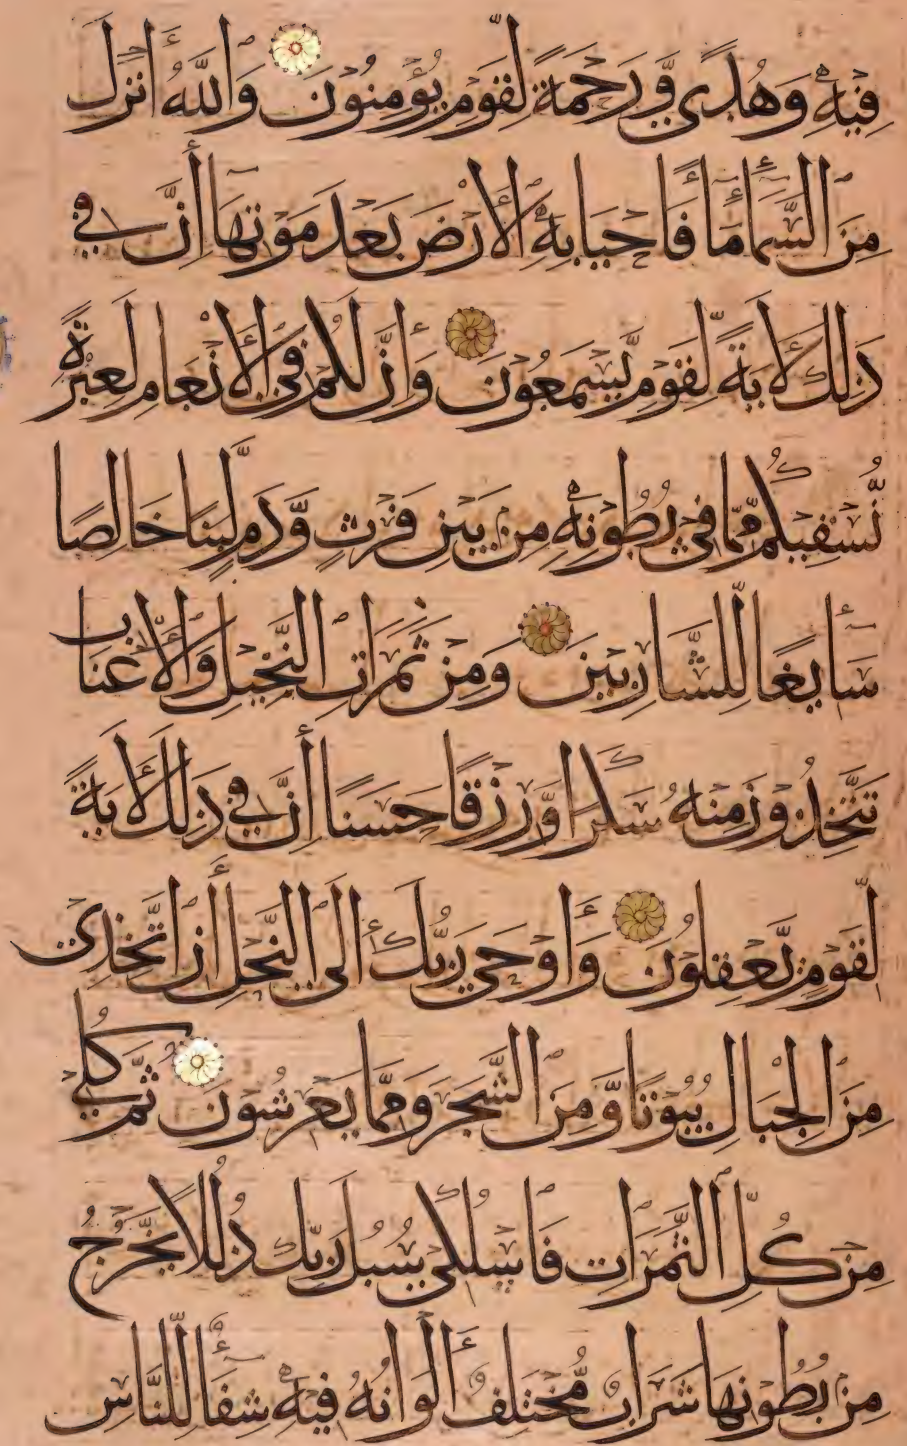 فِيهِ وَهُدًى وَّرَحْمَةً لِّقَوْمٍ يُؤْمِنُونَ وَاللَّهُ أَنْزَلَ
مِنَ السَّمَاءِ مَاءً فَأَحْيَا بِهِ الْأَرْضَ بَعْدَ مَوْتِهَا إِنَّ فِي
ذَلِكَ لَآيَةً لِّقَوْمٍ يَّسْمَعُونَ وَإِنَّ لَكُمْ فِي الْأَنْعَامِ لَعِبْرَةً
نُّسْقِيكُمْ مِّمَّا فِي بُطُونِهِ مِنْ بَيْنِ فَرْثٍ وَّدَمٍ لَّبَنًا خَالِصًا
سَايِغًا لِّلشَّارِبِينَ وَمِنْ ثَمَرَاتِ النَّخِيلِ وَالْأَعْنَابِ
تَتَّخِذُونَ مِنْهُ سَكَرًا وَّرِزْقًا حَسَنًا إِنَّ فِي ذَلِكَ لَآيَةً
لِّقَوْمٍ يَّعْقِلُونَ وَأَوْحَى رَبُّكَ إِلَى النَّحْلِ أَنِ اتَّخِذِي
مِنَ الْجِبَالِ بُيُوتًا وَّمِنَ الشَّجَرِ وَمِمَّا يَعْرِشُونَ ثُمَّ كُلِي
مِنْ كُلِّ الثَّمَرَاتِ فَاسْلُكِي سُبُلَ رَبِّكِ ذُلُلًا يَخْرُجُ
مِنْ بُطُونِهَا شَرَابٌ مُّخْتَلِفٌ أَلْوَانُهُ فِيهِ شِفَاءٌ لِّلنَّاسِ